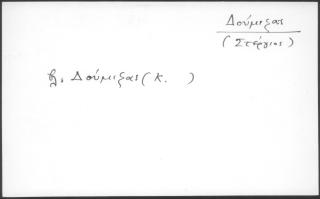 Δούμιζας
(Στέργιος)
βλ. Δούμιζας (Κ. )